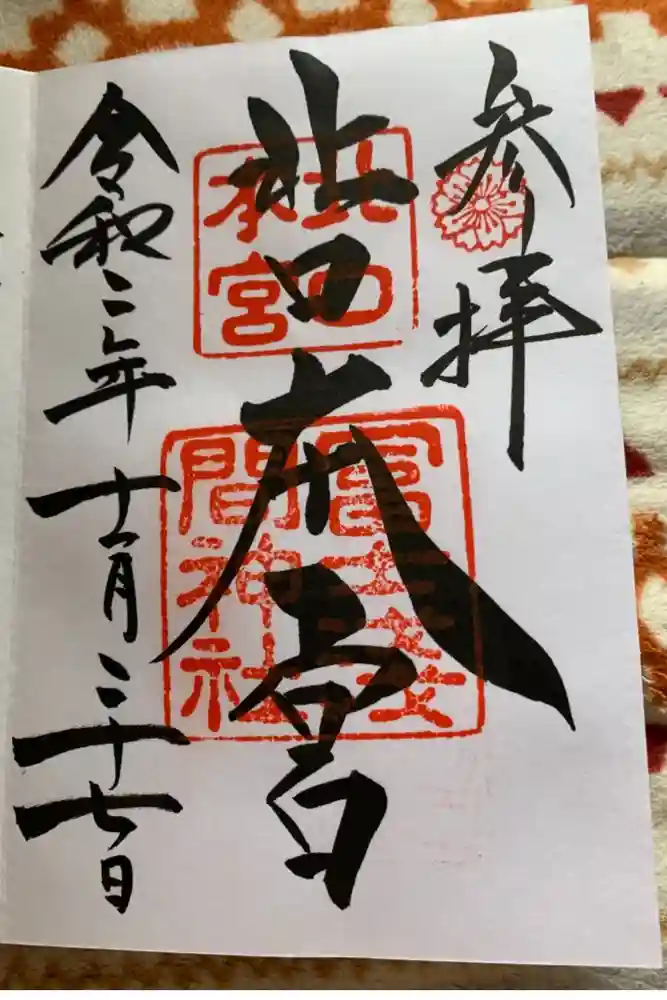 参拝
北口本宮
北口
本宮
冨士浅
間神社
令和二年十一月二十七日